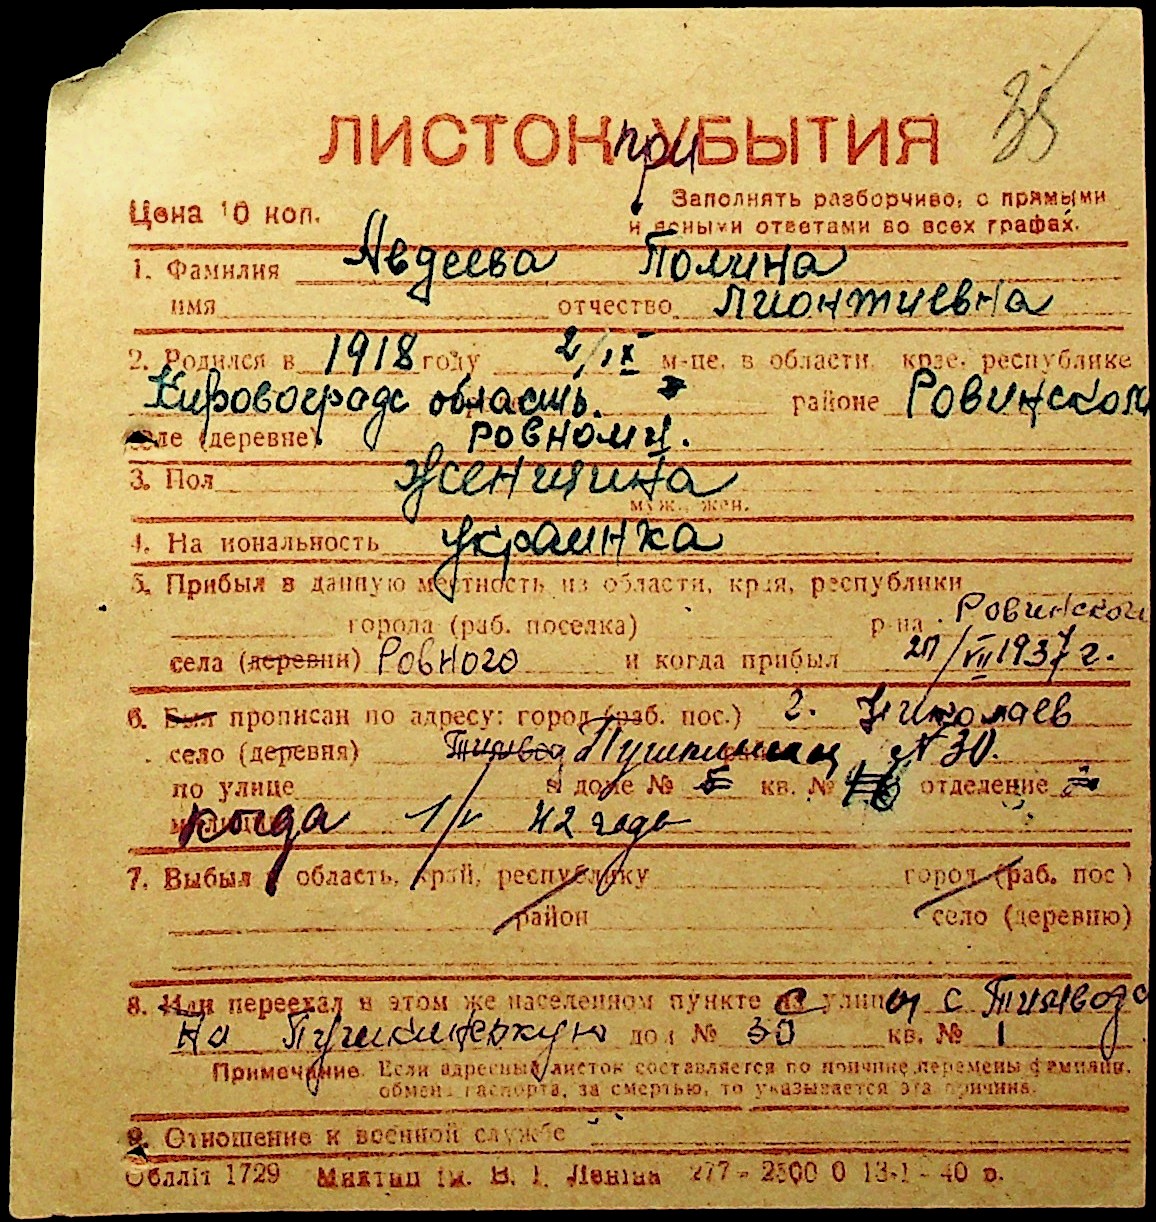 35
ЛИСТОК при УБЫТИЯ
Цена 10 коп.
Заполнять разборчиво, с прямыми
и ясными ответами во всех графах.
1. Фамилия Авдеева Полина
имя отчество Лионтиевна
2. Родился в 1918 году 2/IX м-це, в области, крае, республике
Кировоградс область. районе Ровинском
селе (деревне) Ровному.
3. Пол женщина
муж., жен.
4. На иональность украинка
5. Прибыл в данную местность из области, края, республики
города (раб. поселка) р-на Ровинского
села (деревни) Ровного и когда прибыл 20/VII 1937 г.
6. Был прописан по адресу: город (раб. пос.) г. Николаев
село (деревня) Пушкинская N 30.
по улице в доме № 5 кв. № отделение
когда 1/V 42 года
7. Выбыл в область, край, республику город (раб. пос)
район село (деревню)
8. Или переехал в этом же населенном пункте с улицы с
на Пушкинскую дом № 30 кв. № 1
Примечание. Если адресный листок составляется по причине перемены фамилии,
обмена паспорта, за смертью, то указывается эта причина.
9. Отношение к военной службе
Облліт 1729 Миктип ім. В. І. Леніна 277 - 2500 0 13-1 - 40 р.